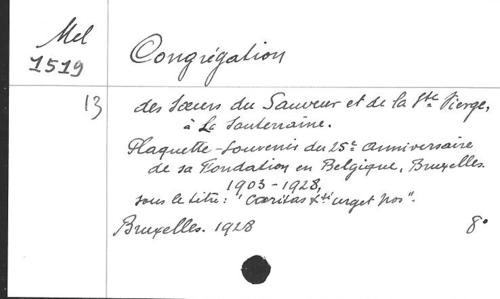 Mel
1519
Congrégation
13
des Sœurs du Sauveur et de la Ste Vierge,
à La Souterraine.
Plaquette-souvenir du 25e anniversaire
de sa Fondation en Belgique, Bruxelles.
1903-1928,
sous le titre: "Caritas Xti urget nos".
Bruxelles. 1928
8°